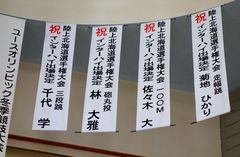 祝 陸上北海道選手権大会 走幅跳
インターハイ出場決定 菊地 ひかり
祝 陸上北海道選手権大会 一〇〇M
インターハイ出場決定 佐々木 大
祝 陸上北海道選手権大会 砲丸投
インターハイ出場決定 林 大雅
祝 陸上北海道選手権大会 三段跳
インターハイ出場決定 千代 学
ユースオリンピック冬季競技大会